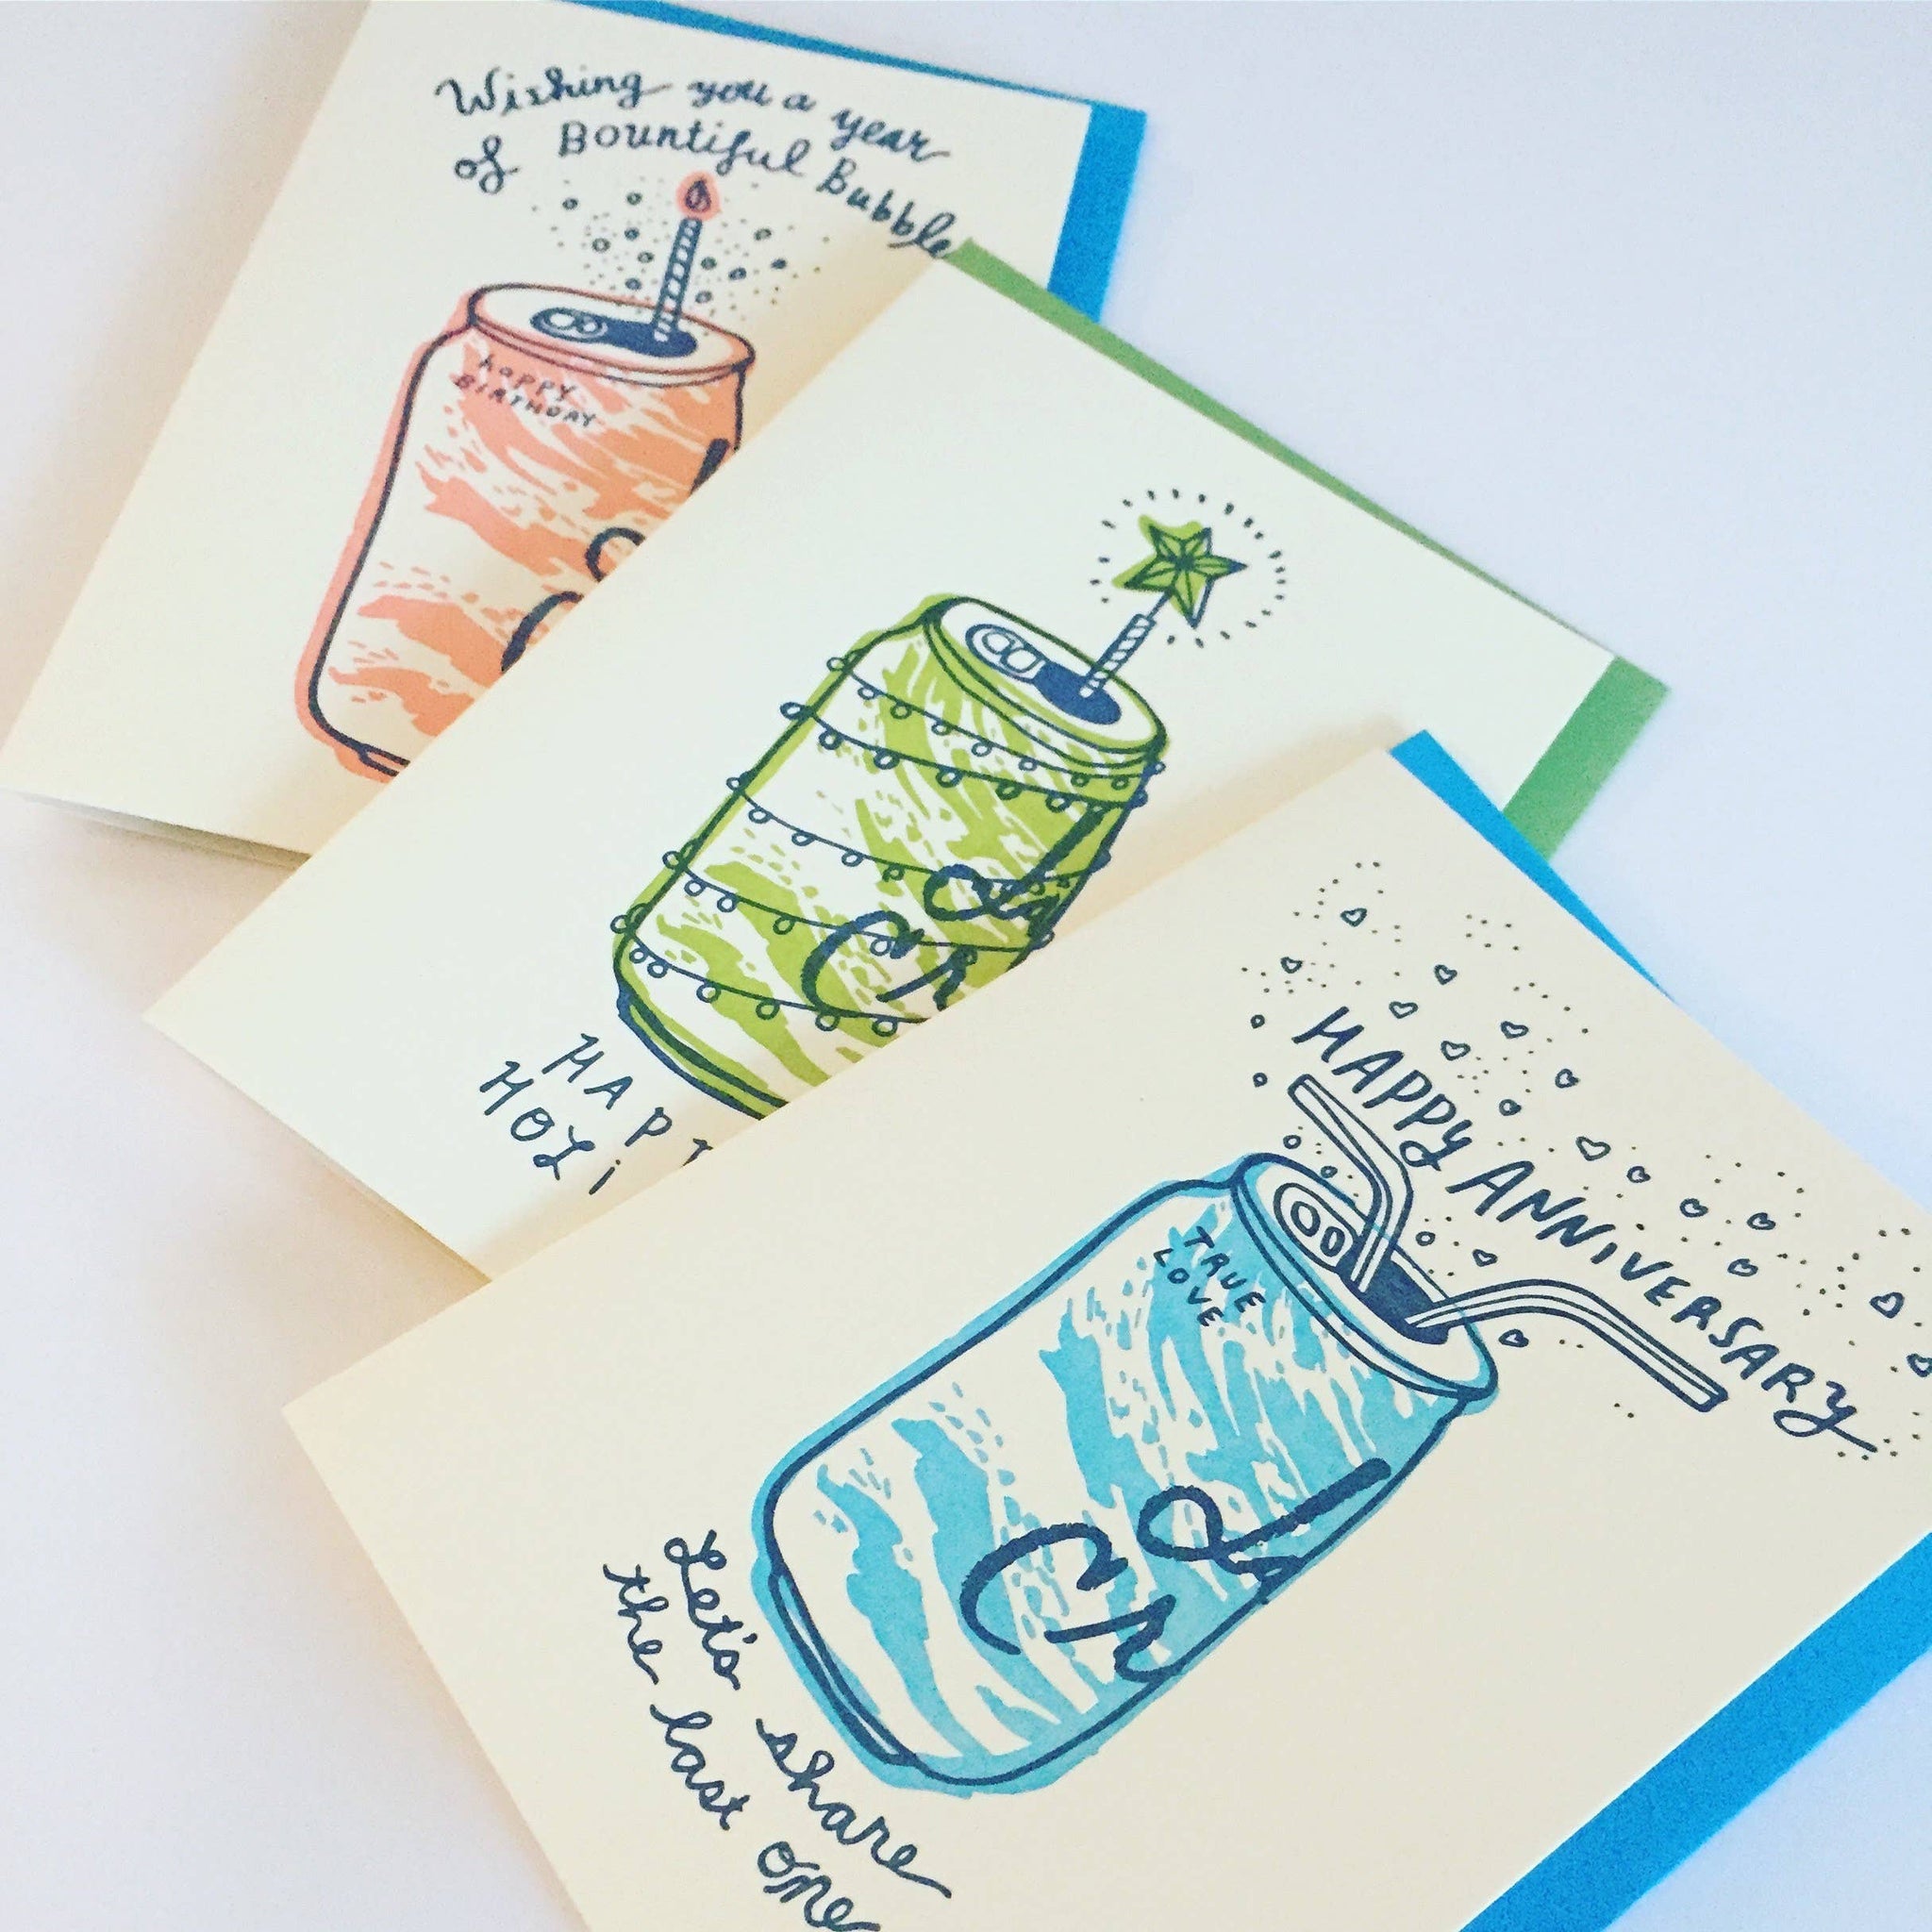 Wishing you a year
of Bountiful Bubble
happy
BIRTHDAY
La
Cr
HAPP
HOLi
HAPPY ANNiVERSARY
TRUE
LOVE
La
Cr
Let's share
the last one